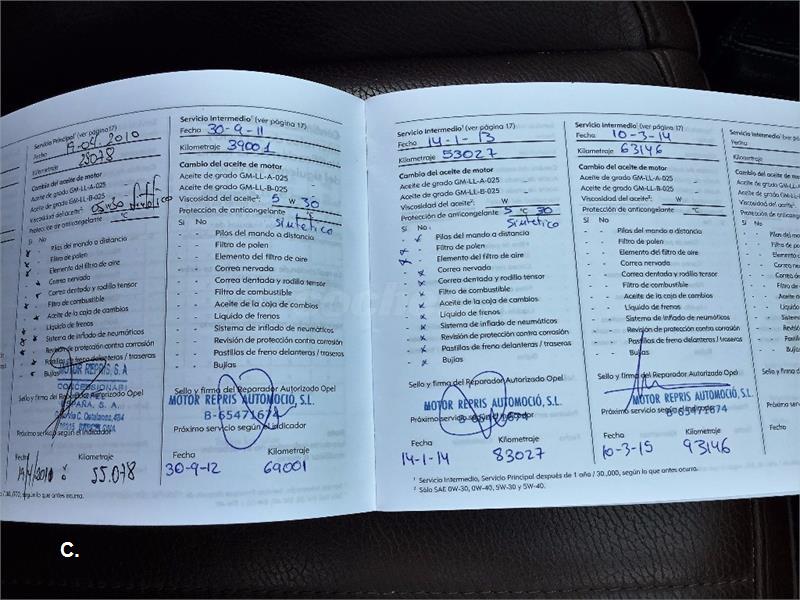 Servicio Principal¹ (ver página 17)
Fecha 19-04-2010
Kilometraje 25078
Cambio del aceite de motor
Aceite de grado GM-LL-A-025
Aceite de grado GM-LL-B-025
Viscosidad del aceite²: 05W30
Protección de anticongelante °C
Sí No
Pilas del mando a distancia
Filtro de polen
Elemento del filtro de aire
Correa nervada
Correa dentada y rodillo tensor
Filtro de combustible
Aceite de la caja de cambios
Líquido de frenos
Sistema de inflado de neumáticos
Revisión de protección contra corrosión
Pastillas de freno delanteras / traseras
Bujías
MOTOR REPRIS, S.A
CONCESSIONARI
Sello y firma del Reparador Autorizado Opel
ESPAÑA, S. A.
BARCELONA
Próximo servicio según el indicador
Fecha Kilometraje
19/4/2010 55.078
/ 30.000, según lo que antes ocurra.
Servicio Intermedio¹ (ver página 17)
Fecha 30-9-11
Kilometraje 39001
Cambio del aceite de motor
Aceite de grado GM-LL-A-025 -
Aceite de grado GM-LL-B-025 -
Viscosidad del aceite²: 5 W 30
Protección de anticongelante °C
Sintetico
Sí No
- - Pilas del mando a distancia
- - Filtro de polen
- - Elemento del filtro de aire
- - Correa nervada
- - Correa dentada y rodillo tensor
- - Filtro de combustible
- - Aceite de la caja de cambios
- - Líquido de frenos
- - Sistema de inflado de neumáticos
- - Revisión de protección contra corrosión
- - Pastillas de freno delanteras / traseras
- - Bujías
Sello y firma del Reparador Autorizado Opel
MOTOR REPRIS AUTOMOCIÓ, S.L.
B-65471674
Próximo servicio según el indicador
Fecha Kilometraje
30-9-12 69001
Servicio Intermedio¹ (ver página 17)
Fecha 14-1-13
Kilometraje 53027
Cambio del aceite de motor
Aceite de grado GM-LL-A-025 -
Aceite de grado GM-LL-B-025 -
Viscosidad del aceite²: W
Protección de anticongelante 5 °C 30
Sintetico
Sí No
- x Pilas del mando a distancia
x - Filtro de polen
x - Elemento del filtro de aire
- x Correa nervada
- x Correa dentada y rodillo tensor
- x Filtro de combustible
- x Aceite de la caja de cambios
- x Líquido de frenos
- x Sistema de inflado de neumáticos
- x Revisión de protección contra corrosión
- x Pastillas de freno delanteras / traseras
- x Bujías
Sello y firma del Reparador Autorizado Opel
MOTOR REPRIS AUTOMOCIÓ, S.L.
B-65471674
Próximo servicio según el indicador
Fecha Kilometraje
14-1-14 83027
¹ Servicio Intermedio, Servicio Principal después de 1 año / 30.000, según lo que antes ocurra.
² Sólo SAE 0W-30, 0W-40, 5W-30 y 5W-40.
Servicio Intermedio¹ (ver página 17)
Fecha 10-3-14
Kilometraje 63146
Cambio del aceite de motor
Aceite de grado GM-LL-A-025 -
Aceite de grado GM-LL-B-025 -
Viscosidad del aceite²: W
Protección de anticongelante °C
Sí No
- - Pilas del mando a distancia
- - Filtro de polen
- - Elemento del filtro de aire
- - Correa nervada
- - Correa dentada y rodillo tensor
- - Filtro de combustible
- - Aceite de la caja de cambios
- - Líquido de frenos
- - Sistema de inflado de neumáticos
- - Revisión de protección contra corrosión
- - Pastillas de freno delanteras / traseras
- - Bujías
Sello y firma del Reparador Autorizado Opel
MOTOR REPRIS AUTOMOCIÓ, S.L.
B-65471674
Próximo servicio según el indicador
Fecha Kilometraje
10-3-15 93146
Servicio Intermedio
Fecha
Kilometraje
Cambio del aceite
Aceite de grado
Aceite de grado
Viscosidad del
Protección de
Sí No
- - Pilas del
- - Filtro
- - Elemento
- - Correa
- - Correa
- - Filtro
- - Aceite
- - Líquido
- - Sistema
- - Revisión
- - Pastillas
- - Bujías
Sello y firma
Próximo
Fecha
C.